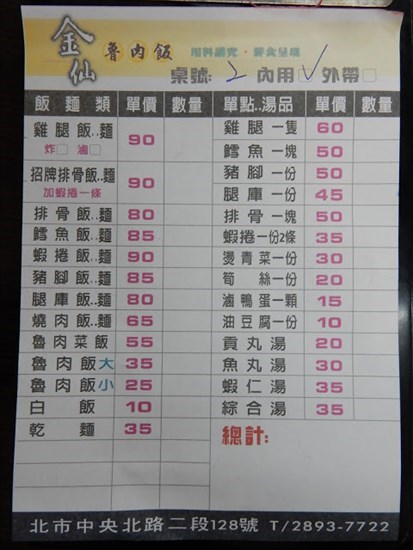 金仙
魯肉飯
用料講究・美食呈現
桌號: 2 內用☑ 外帶□
飯 麵 類 單價 數量 單點..湯品 單價 數量
雞腿飯..麵 90 雞腿一隻 60
炸□ 滷□
鱈魚一塊 50
招牌排骨飯..麵 90 豬腳一份 50
加蝦捲一條
腿庫一份 45
排骨飯..麵 80 排骨一塊 50
鱈魚飯..麵 85 蝦捲一份2條 35
蝦捲飯..麵 90 燙青菜一份 30
豬腳飯..麵 85 筍絲一份 20
腿庫飯..麵 80 滷鴨蛋一顆 15
燒肉飯..麵 65 油豆腐一份 10
魯肉菜飯 55 貢丸湯 20
魯肉飯大 35 魚丸湯 30
魯肉飯小 25 蝦仁湯 35
白飯 10 綜合湯 35
乾麵 35 總計:
北市中央北路二段128號 T/2893-7722